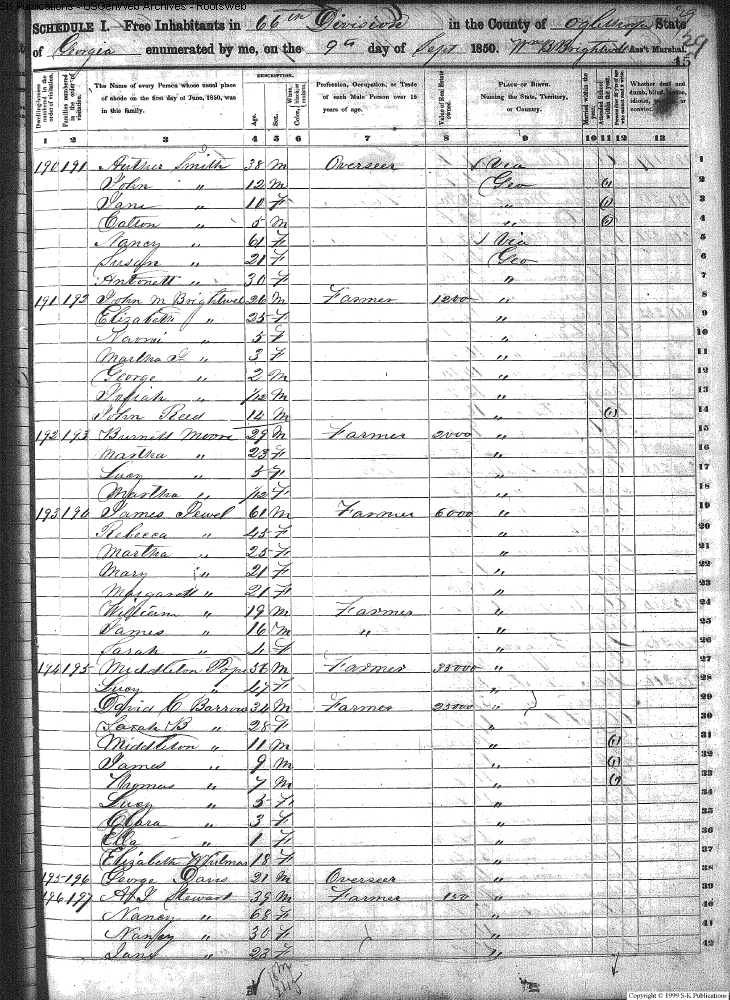 SK Publications - USGenWeb Archives - Rootsweb
SCHEDULE I.—Free Inhabitants in 66th Division in the County of Oglethorpe State
of Georgia enumerated by me, on the 9th day of Sept 1850. Wm B Brightwell Ass't Marshal.
29
15
Dwelling-houses numbered in the order of visitation.
Families numbered in the order of visitation.
The Name of every Person whose usual place of abode on the first day of June, 1850, was in this family.
DESCRIPTION.
Age.
Sex.
White, black, or mulatto.
Color,
Profession, Occupation, or Trade of each Male Person over 15 years of age.
Value of Real Estate owned.
PLACE OF BIRTH.
Naming the State, Territory, or Country.
Married within the year.
Attended School within the year.
Whether deaf and dumb, blind, insane, idiotic, or convict.
1 2 3 4 5 6 7 8 9 10 11 12 13
190 191 Auther Smith 38 M Overseer Via 1
John " 12 M Geo 1 2
Jane " 10 F " 1 3
Colton " 5 M " 4
Nancy " 61 F Via 5
Susan " 21 F Geo 6
Antonett " 30 F " 7
191 192 John M Brightwel 26 M Farmer 1200 " 8
Elizabeth " 25 F " 9
Naomi " 5 F " 10
Martha " 3 F " 11
George " 2 M " 12
Josiah " 1/12 M " 13
John Reed 14 M " 1 14
192 193 Burnitt Moore 29 M Farmer 2000 " 15
Martha " 23 F " 16
Lucy " 5 F " 17
Martha " 1/12 F " 18
193 190 James Jewel 61 M Farmer 6000 " 19
Rebecca " 45 F " 20
Martha " 25 F " 21
Mary " 21 F " 22
Margarett " 21 F " 23
William " 19 M Farmer " 24
James " 16 M " " 25
Sarah " 4 F " 26
194 195 Middleton Pope 56 M Farmer 35000 " 27
Lucy " 47 F " 28
David C Barrow 34 M Farmer 25000 " 29
Sarah B " 28 F " 30
Middleton " 11 M " 1 31
James " 9 M " 1 32
Thomas " 7 M " 1 33
Lucy " 5 F " 34
Clara " 3 F " 35
Ella " 1 F " 36
Elizabeth 18 F " 37
195 196 George Davis 21 M Overseer " 38
196 197 A J Steward 39 M Farmer 150 " 39
Nancy " 68 F " 40
Nancy " 30 F " 41
Jane " 23 F " 42
Copyright © 1999 S-K Publications